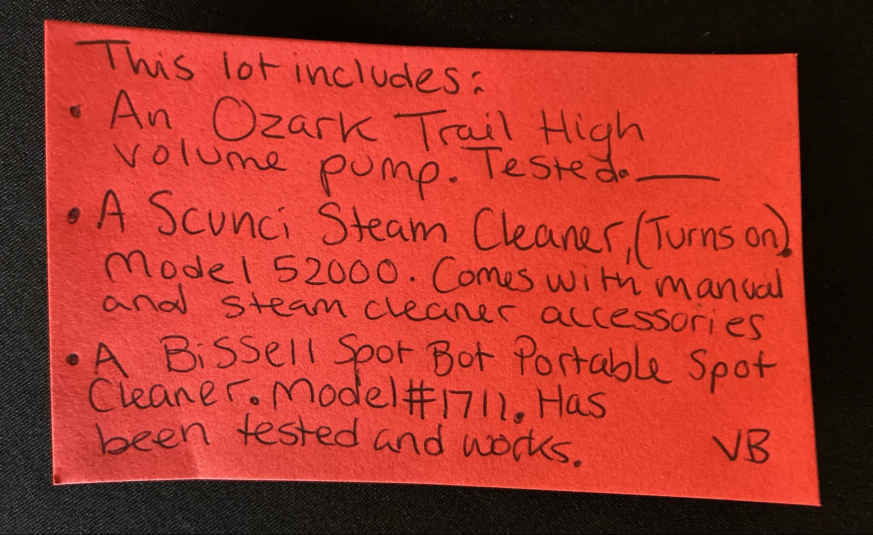 This lot includes:
• An Ozark Trail High
volume pump. Tested. ____
• A Scunci Steam Cleaner, (Turns on).
Model 52000. Comes with manual
and steam cleaner accessories
• A Bissell Spot Bot Portable Spot
Cleaner. Model #1711. Has
been tested and works. VB